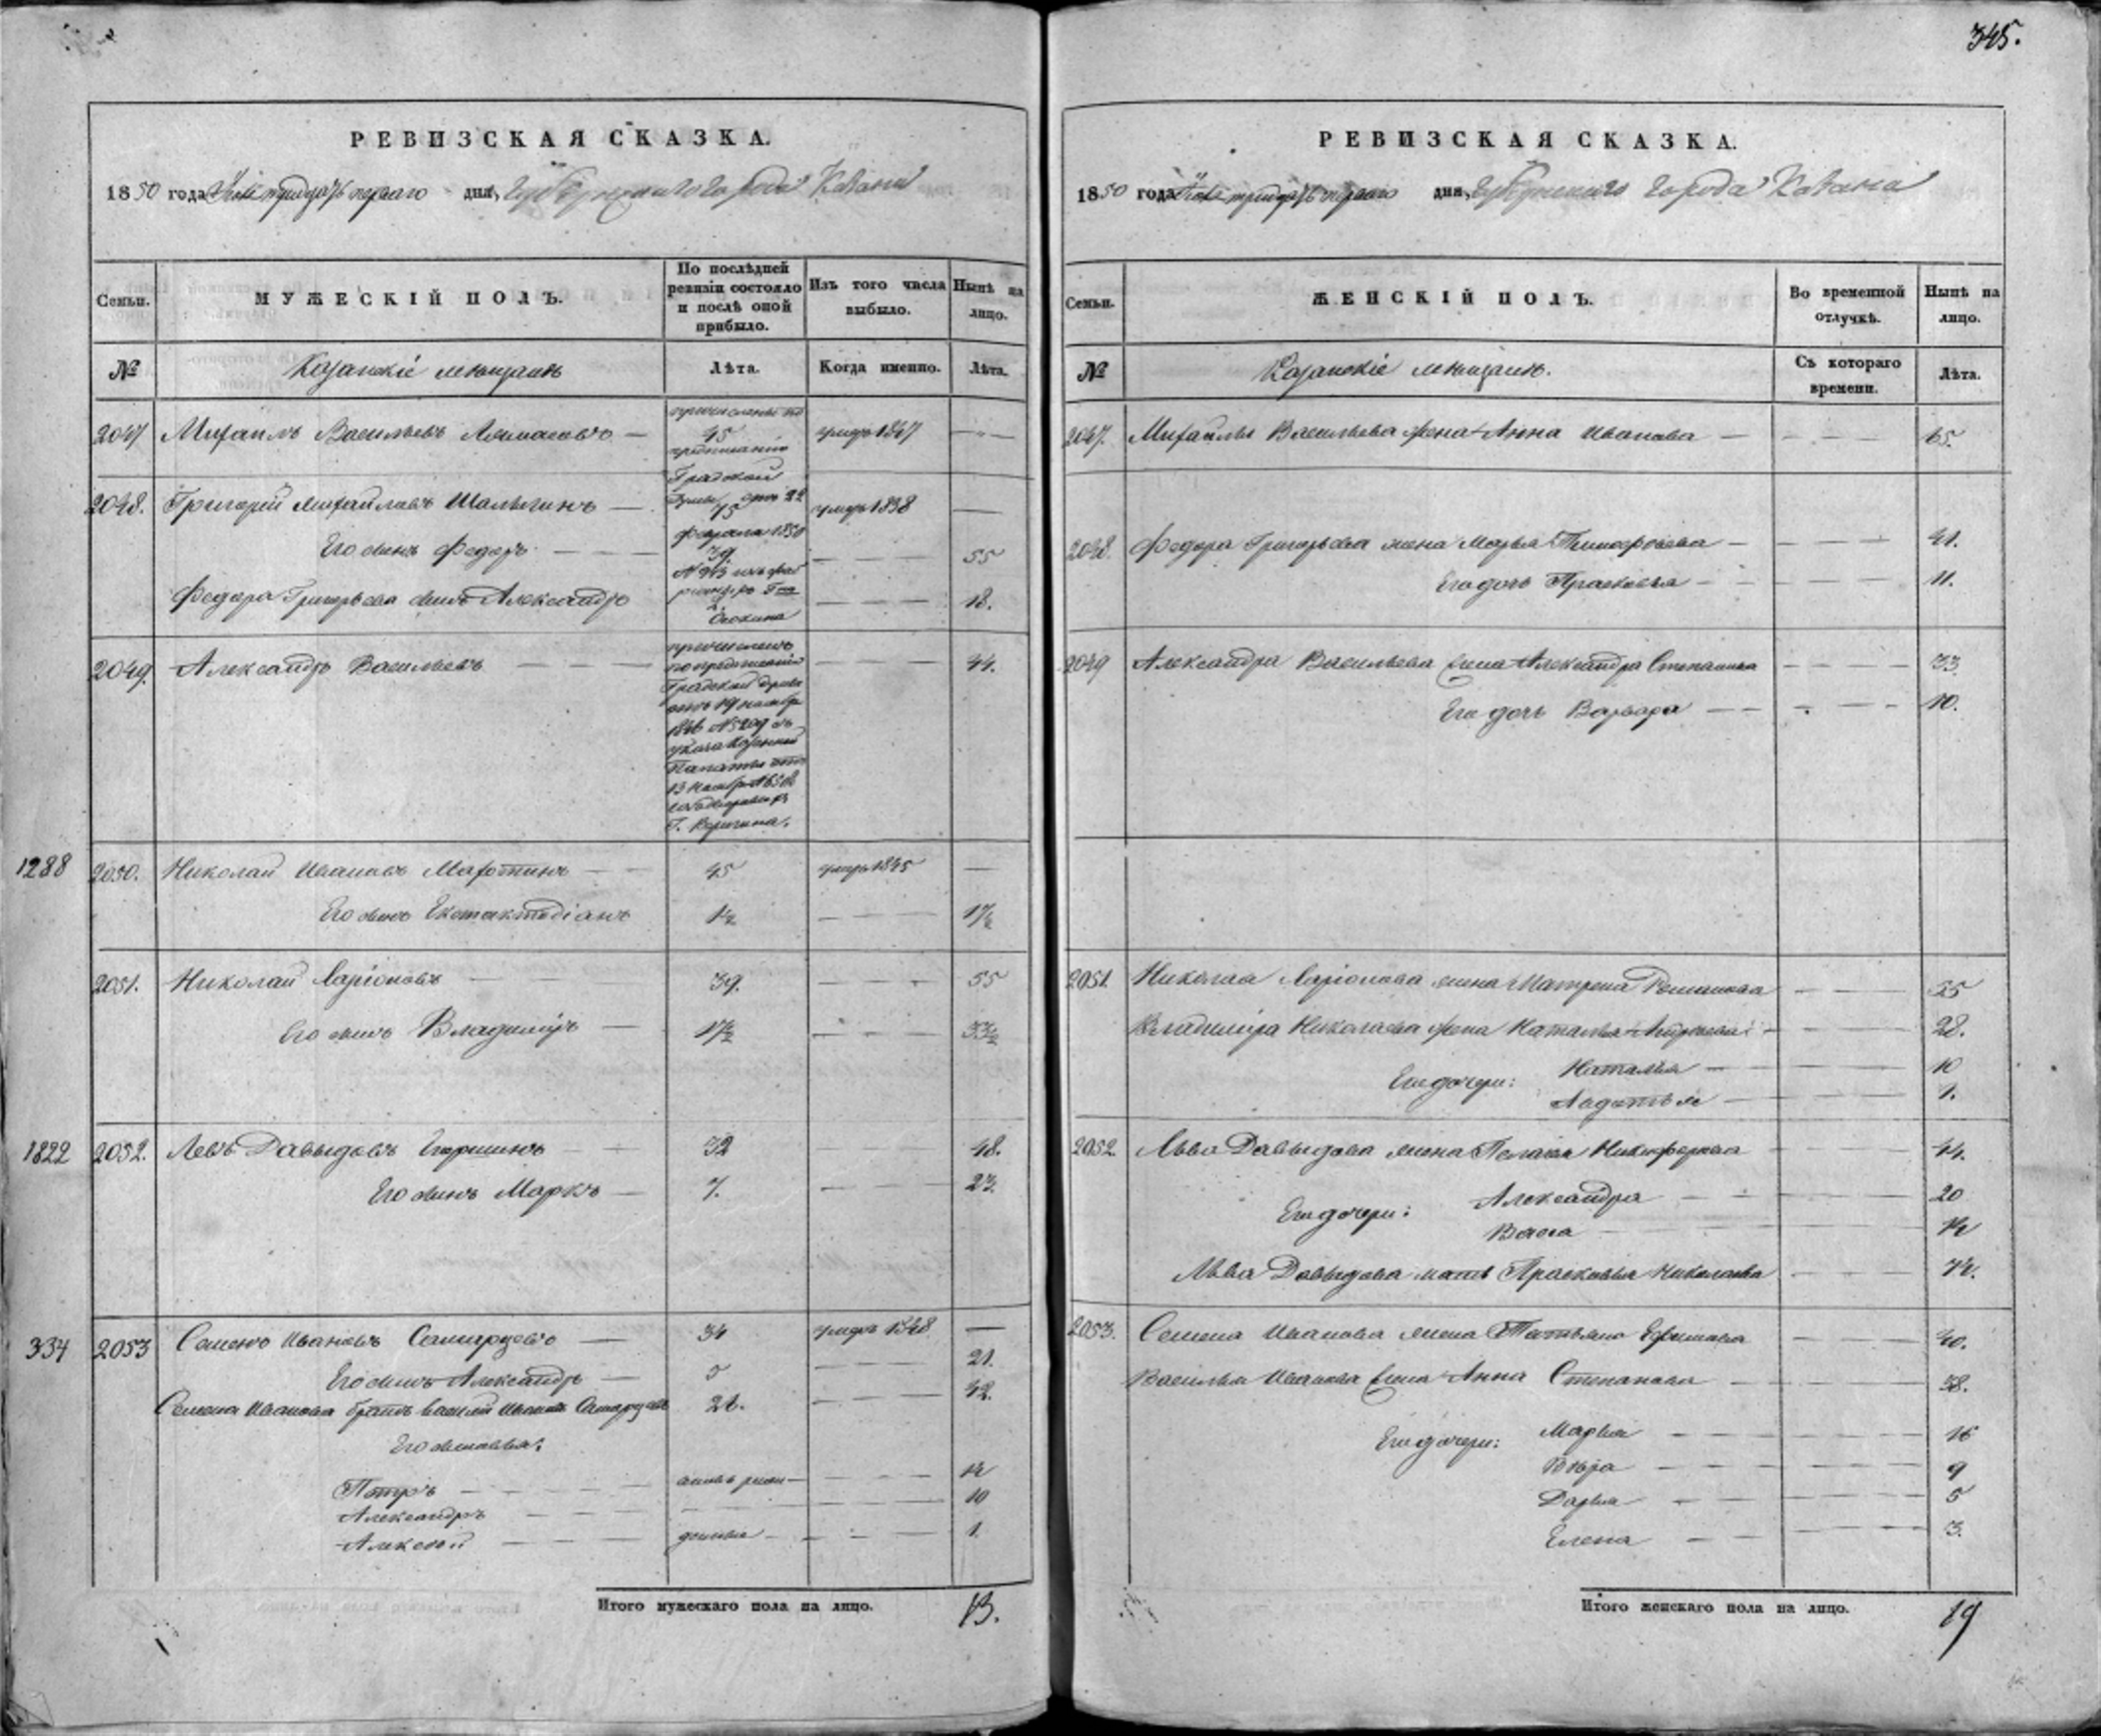 345.
РЕВИЗСКАЯ СКАЗКА.
1850 года тридцать перваго дня, Губернскаго города Казани
Семьи. МУЖЕСКІЙ ПОЛЪ. По послѣдней ревизіи состояло и послѣ оной прибыло. Изъ того числа выбыло. Нынѣ на лицо.
№ Казанскіе мещане Лѣта. Когда именно. Лѣта.
2047 Михаилъ Васильевъ 45 умеръ 1847 —
причислены по
предписанію
Градской
Думы отъ 22
февраля 1850
2048. Григорій Михайловъ Шалыгинъ — 75 умеръ 1838 —
Его сынъ Федоръ — 39 — 55
Федора Григорьева сынъ Александръ — 18.
2049. Александръ Васильевъ — 44.
причисленъ
по предписанію
Градской Думы
отъ 19 ноября
1846 № 5209
указа Казенной
Палаты отъ
13 ноября
Г. Веригина.
1288 2050. Николай Ивановъ — 45 умеръ 1845 —
Его сынъ 1½ — 17½
2051. Николай Ларіоновъ — 39. — 55
Его сынъ Владиміръ — 17½ — 33½
1822 2052. Левъ Давыдовъ 32 — 48.
Его сынъ Марко — 7. — 23.
334 2053 Семенъ Ивановъ — 34 умеръ 1848 —
Его сынъ Александръ — 5 — 21.
Семена Иванова братъ Василій Ивановъ 26. — 42.
Его сыновья:
Петръ — послѣ реви— 14
Александръ — 10
Алексѣй — 1.
Итого мужескаго пола на лицо. 13.
РЕВИЗСКАЯ СКАЗКА.
1850 года тридцать перваго дня, Губернскаго города Казани
Семьи. ЖЕНСКІЙ ПОЛЪ. Во временной отлучкѣ. Нынѣ на лицо.
№ Казанскіе мещане. Съ котораго времени. Лѣта.
2047. Михайлы Васильева жена Анна Иванова — 65.
2048. Федора Григорьева жена Марья Тимофеева — 41.
Его дочь Прасковья — 11.
2049 Александра Васильева жена Александра Степанова — 33.
Его дочь Варвара — 10.
2051. Николая Ларіонова жена Матрена Романова — 55
Владиміра Николаева жена Наталья Андреева — 28.
Его дочери: Наталья — 10
1.
2052. Льва Давыдова жена Пелагея Никифорова — 44.
Его дочери: Александра — 20
Васса — 14
Льва Давыдова мать Прасковья Николаева — 74.
2053. Семена Иванова жена Татьяна Ефимова — 40.
Василья Иванова жена Анна Степанова — 38.
Его дочери: Марья — 16
Вѣра — 9
Дарья — 5
Елена — 3.
Итого женскаго пола на лицо. 19